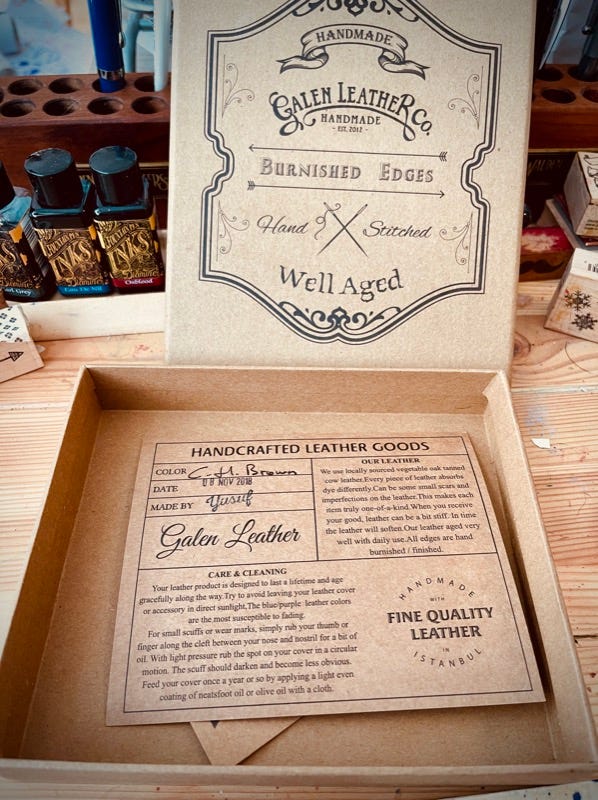 HANDMADE
GALEN LEATHER CO.
HANDMADE
- EST. 2012 -
BURNISHED EDGES
Hand Stitched
Well Aged
INKS
INKS
Earl Grey
Eau De Nil
Oxblood
HANDCRAFTED LEATHER GOODS
COLOR C.H. Brown
DATE 08 NOV 2018
MADE BY Yusuf
Galen Leather
OUR LEATHER
We use locally sourced vegetable oak tanned
cow leather.Every piece of leather absorbs
dye differently.Can be some small scars and
imperfections on the leather.This makes each
item truly one-of-a-kind.When you receive
your good, leather can be a bit stiff. In time
the leather will soften.Our leather aged very
well with daily use.All edges are hand
burnished / finished.
CARE & CLEANING
Your leather product is designed to last a lifetime and age
gracefully along the way.Try to avoid leaving your leather cover
or accessory in direct sunlight.The blue/purple leather colors
are the most susceptible to fading.
For small scuffs or wear marks, simply rub your thumb or
finger along the cleft between your nose and nostril for a bit of
oil. With light pressure rub the spot on your cover in a circular
motion. The scuff should darken and become less obvious.
Feed your cover once a year or so by applying a light even
coating of neatsfoot oil or olive oil with a cloth.
HANDMADE
WITH
FINE QUALITY
LEATHER
IN
ISTANBUL